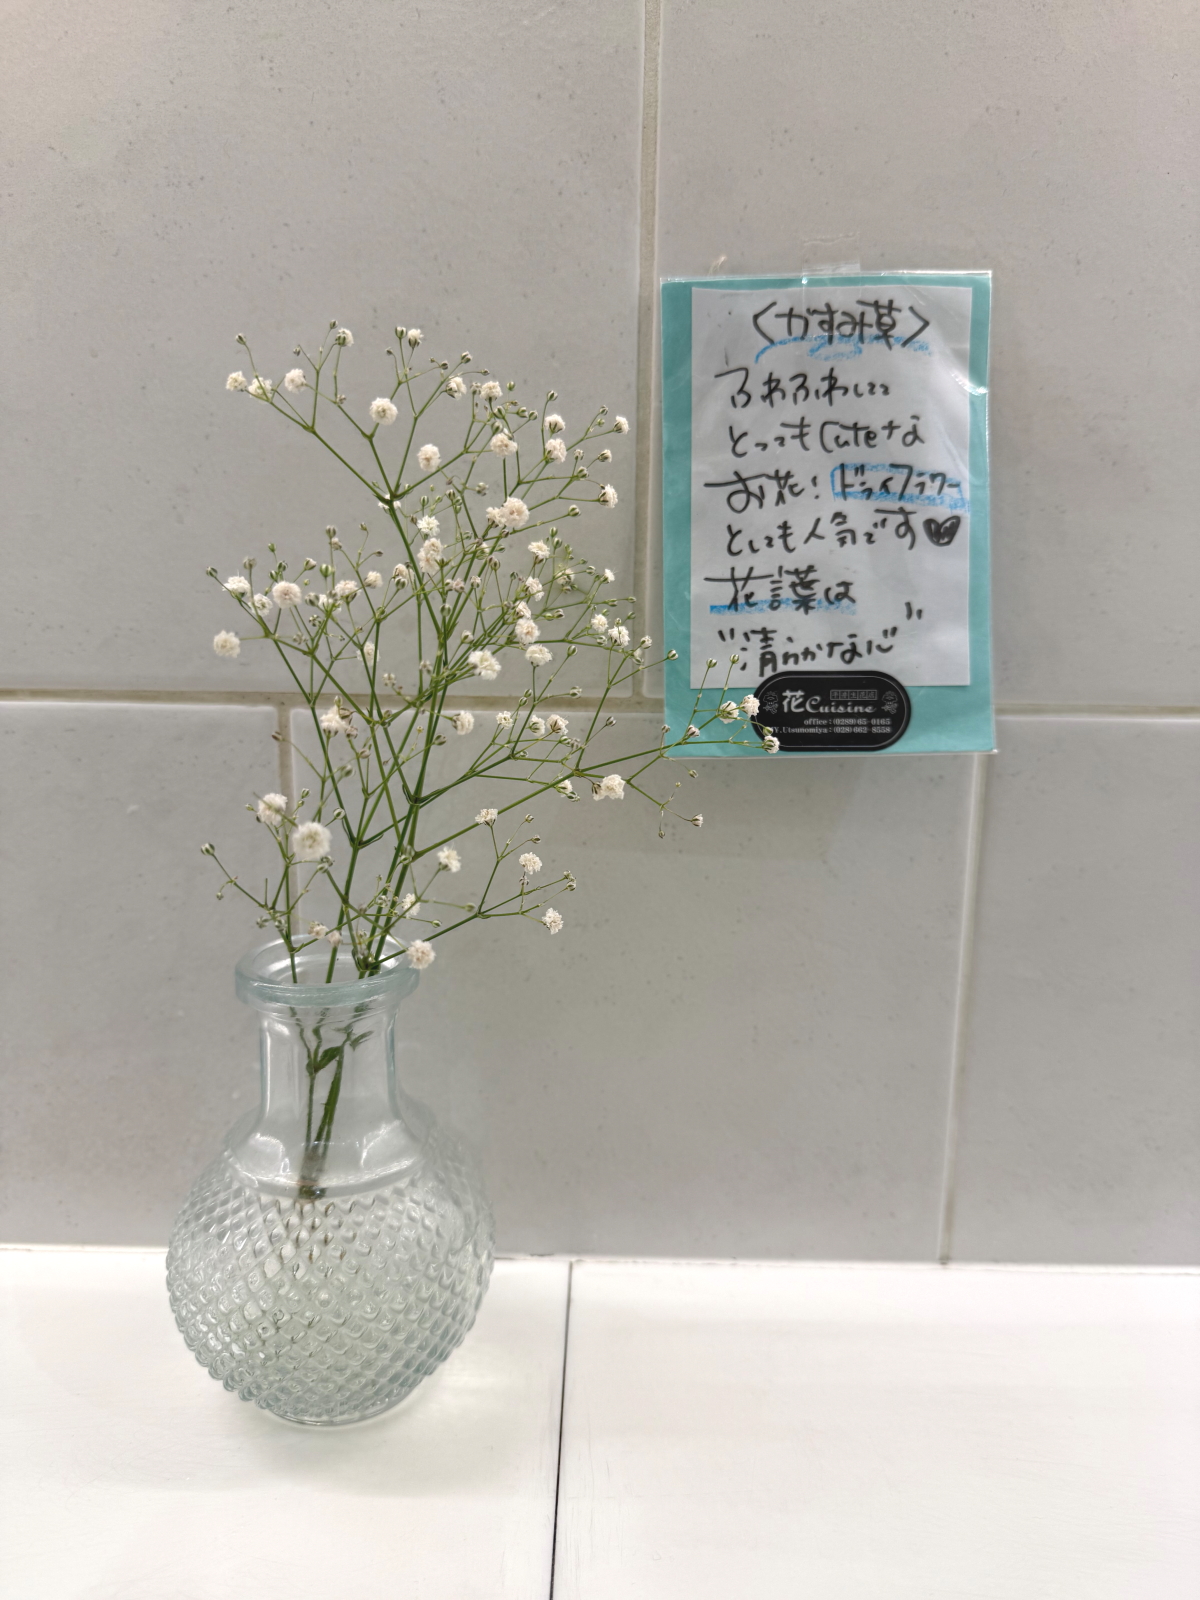 〈かすみ草〉
ふわふわしてて
とってもCuteな
お花！ドライフラワー
としても人気です♥
花言葉は
"清らかな心"
花Cuisine
office:(0289)65-0165
Y.Utsunomiya:(028)662-8558